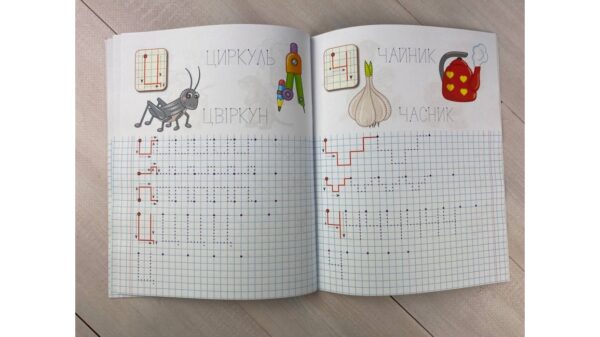 Ц
ЦИРКУЛЬ
ЦВІРКУН
Ц Ц Ц Ц
Ц
Ч
ЧАЙНИК
ЧАСНИК
Ч Ч Ч Ч Ч Ч Ч
Ч